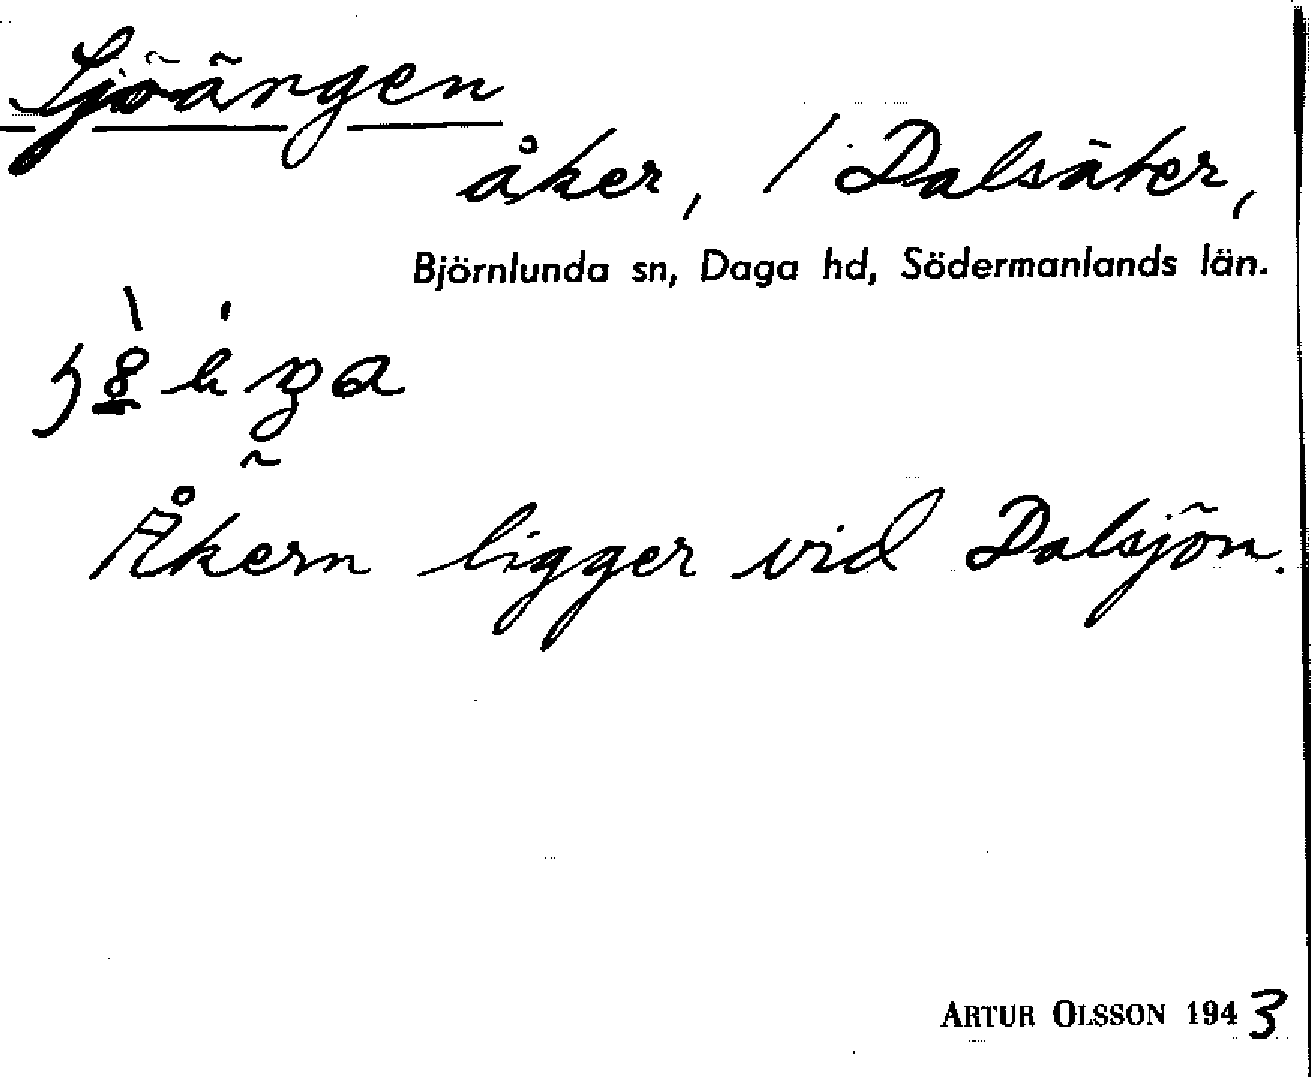 Sjöängen
åker, / Dalsäter,
Björnlunda sn, Daga hd, Södermanlands län.
Åkern ligger vid Dalsjön.
ARTUR OLSSON 1943